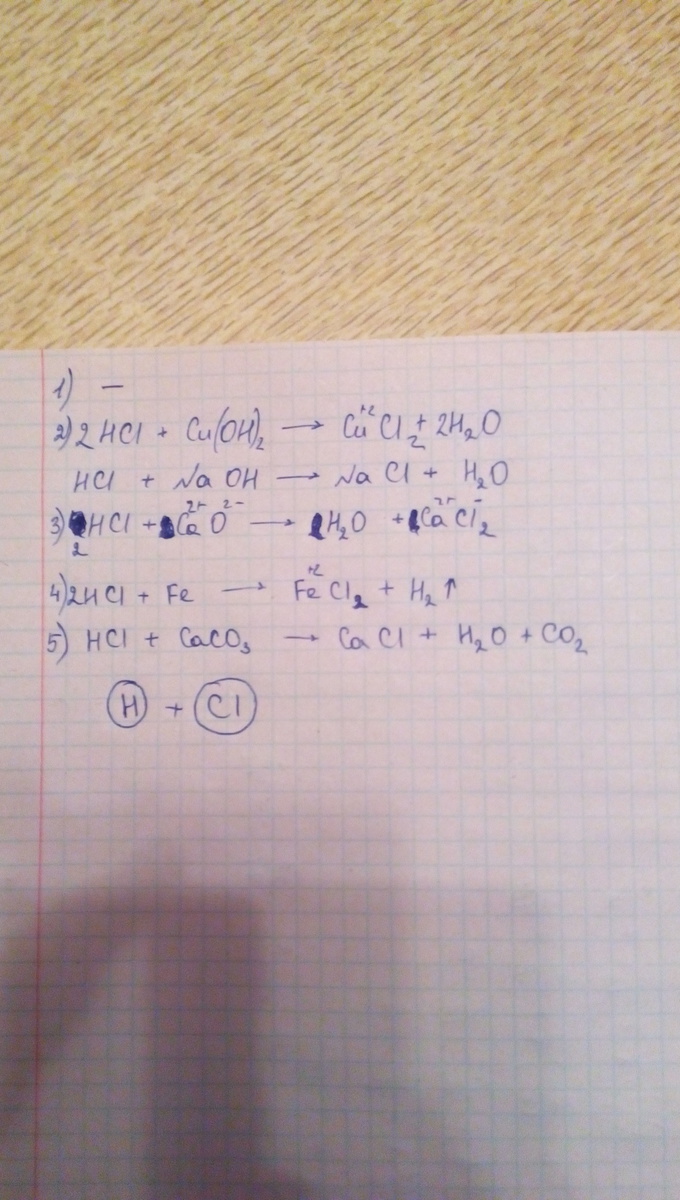 1) —
2) 2HCl + Cu(OH)₂ → Cu⁺²Cl₂ + 2H₂O
HCl + NaOH → NaCl + H₂O
3) 2HCl + Ca²⁺O²⁻ → H₂O + Ca²⁺Cl⁻₂
4) 2HCl + Fe → Fe⁺²Cl₂ + H₂↑
5) HCl + CaCO₃ → CaCl + H₂O + CO₂
H + Cl